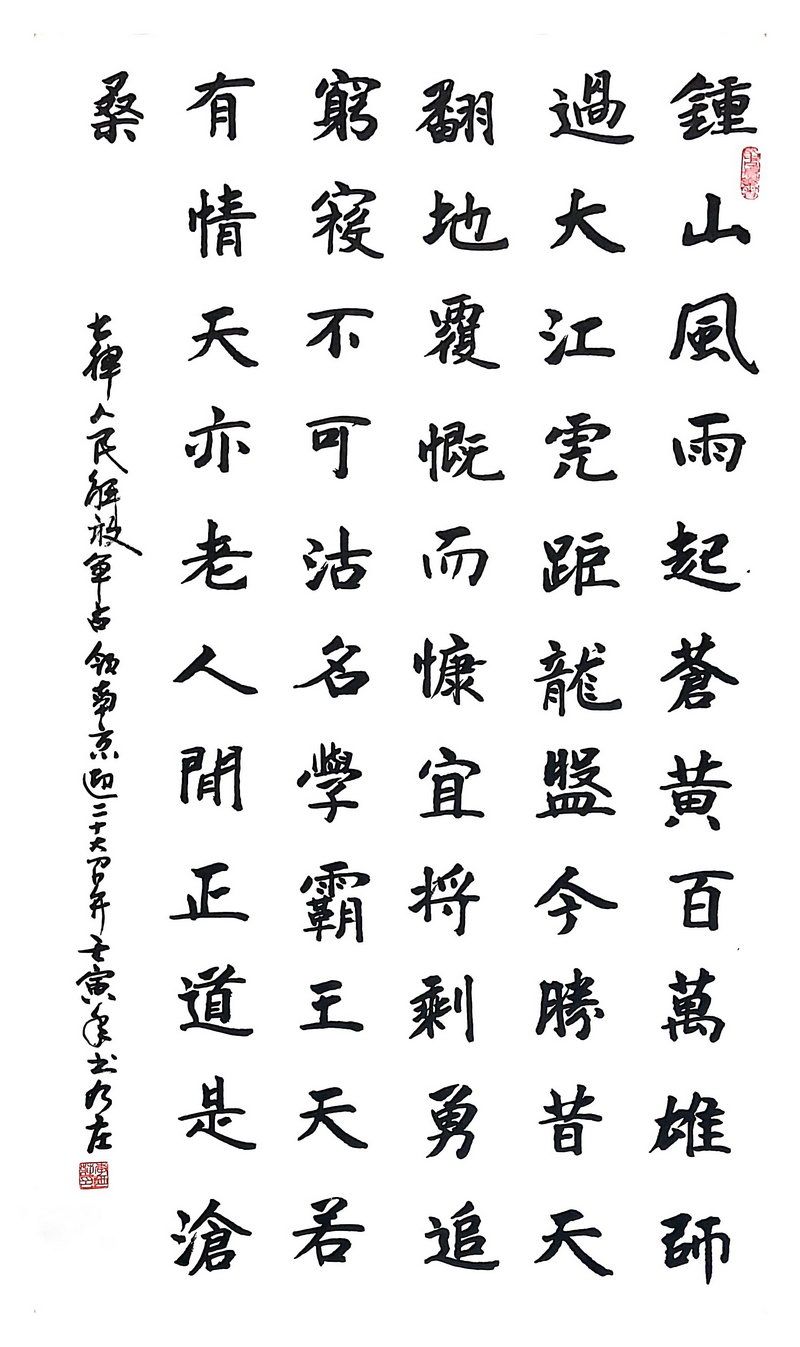 鍾山風雨起蒼黄百萬雄師
過大江虎距龍盤今勝昔天
翻地覆慨而慷宜将剩勇追
窮寇不可沽名學霸王天若
有情天亦老人閒正道是滄
桑
七律人民解放军占领南京迎二十大召开壬寅年书